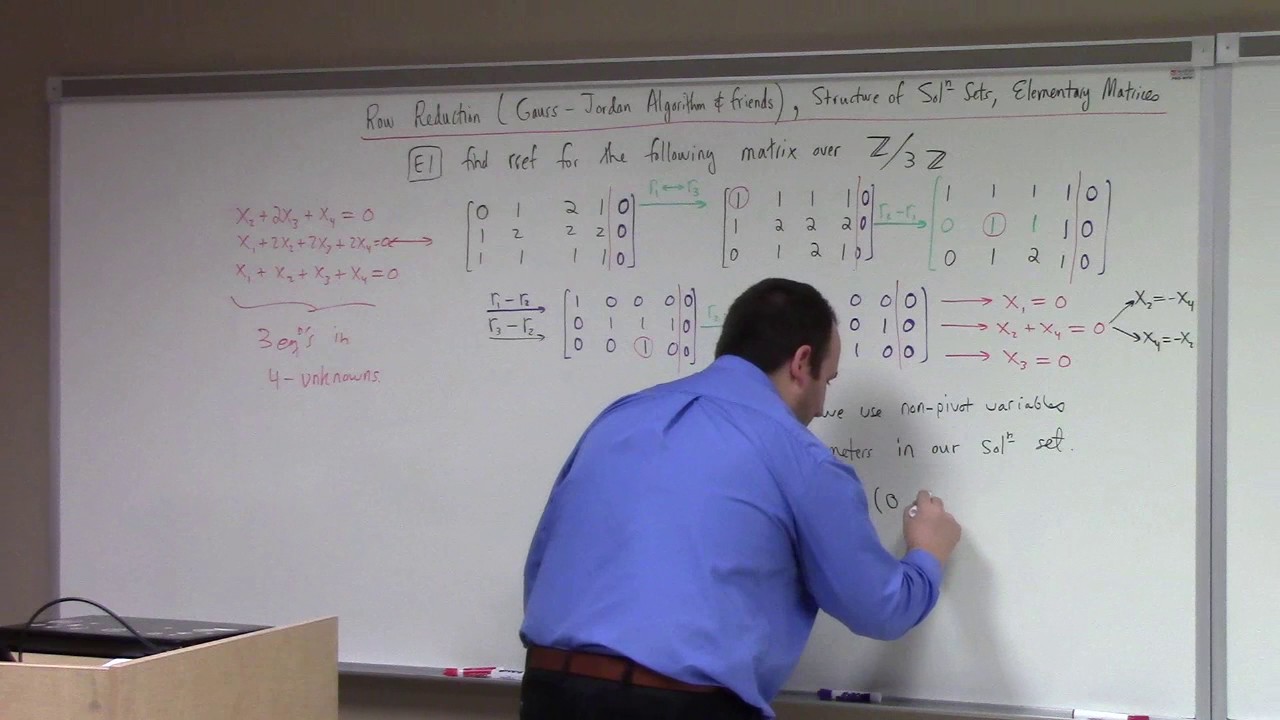 Row Reduction (Gauss-Jordan Algorithm & friends), Structure of Solⁿ Sets, Elementary Matrices
E1 find rref for the following matrix over ℤ/3ℤ
x₂ + 2x₃ + x₄ = 0
x₁ + 2x₂ + 2x₃ + 2x₄ = 0
x₁ + x₂ + x₃ + x₄ = 0
3 eqⁿˢ in
4-unknowns.
[0 1 2 1 | 0]
[1 2 2 2 | 0]
[1 1 1 1 | 0]
r₁ ↔ r₃
[1 1 1 1 | 0]
[1 2 2 2 | 0]
[0 1 2 1 | 0]
r₂ - r₁
[1 1 1 1 | 0]
[0 1 1 1 | 0]
[0 1 2 1 | 0]
r₁ - r₂
r₃ - r₂
[1 0 0 0 | 0]
[0 1 1 1 | 0]
[0 0 1 0 | 0]
0 0 | 0]
0 1 | 0]
1 0 | 0]
x₁ = 0
x₂ + x₄ = 0
x₃ = 0
x₂ = -x₄
x₄ = -x₂
we use non-pivot variables
in our solⁿ set.
(0